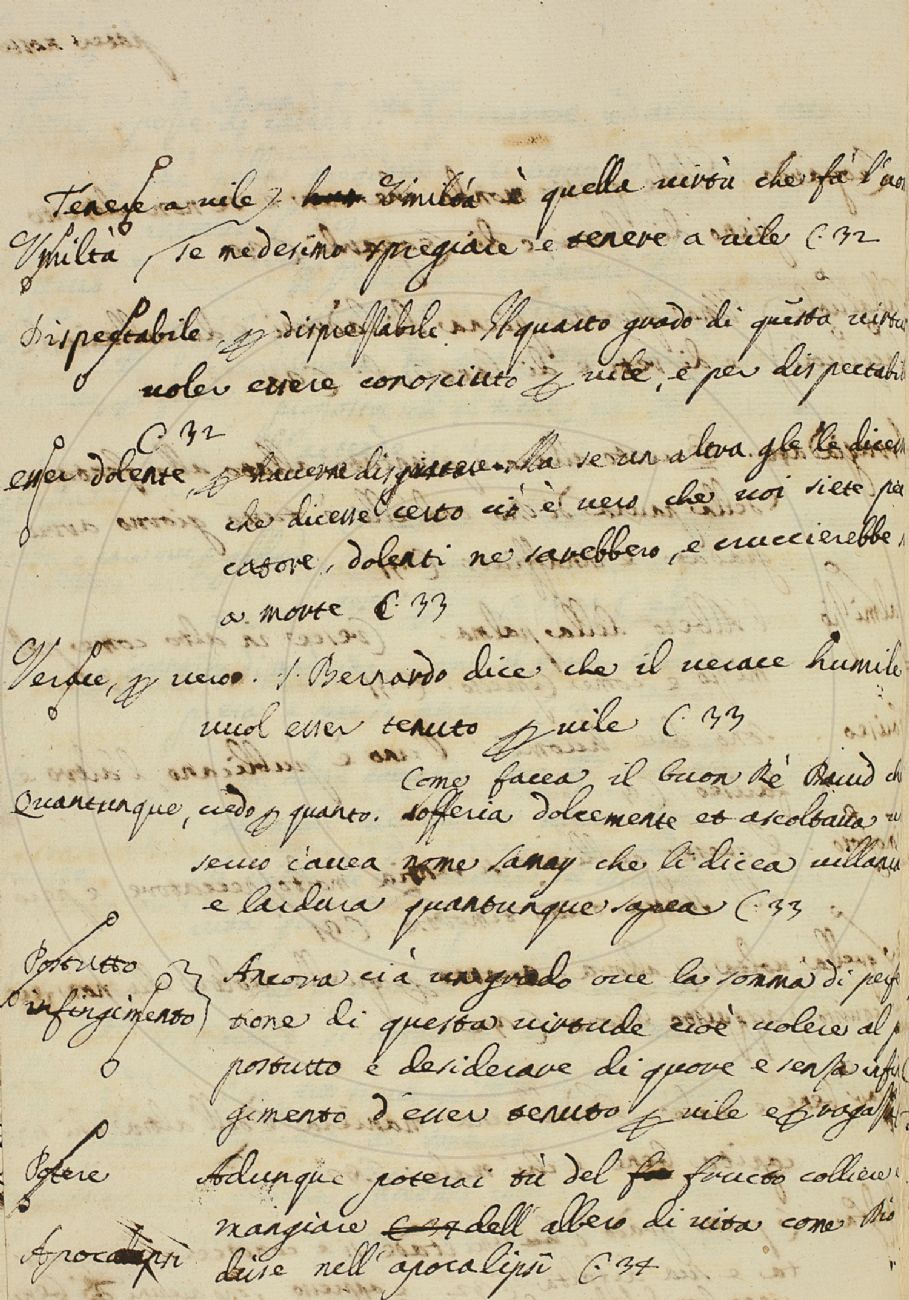 Tenere a vile Vmiltà è quella virtù che fà l'uo
Vmiltà se medesimo spregiare e tenere a vile C. 32
Dispectabile, p dispectabile. Il quarto grado di questa virtu
voler essere conosciuto p vile, e per dispectabi
C. 32
esser dolente p haverne dispiacere. Ma se un altra gle le dices
che dicesse certo ciò è vero che voi siete pec
catore, dolenti ne sarebbero, e cruccierebbe
a morte C. 33
Verace, p vero. S. Bernardo dice che il verace humile
vuol esser tenuto p vile C. 33
Come facea il buon Rè David ch
Quantunque, credo p quanto. sofferia dolcemente et ascoltava u
servo c'avea nome Samay che li dicea villania
e laidura quantunque sapea C. 33
Postutto Ancora ci à un grado ove la somma di perfe
infingimento tione di questa virtude cioè volere al
postutto e desiderare di quore e senza infi
gimento d'esser tenuto p vile e p
Potere Adunque poterai tù del fructo colliere
mangiare C 34 dell' albero di vita come Dio
Apocalipsi disse nell' apocalipsi C. 34